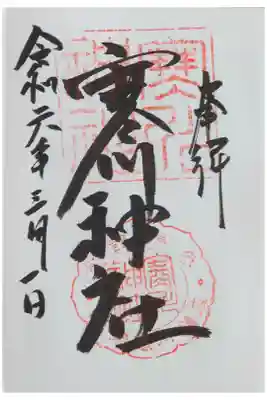 奉拝
寒川神社
令和六年三月一日